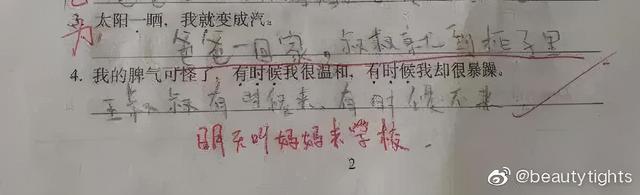 3. 太阳一晒，我就变成汽。
为
爸爸一回家，叔叔就到柜子里
4. 我的脾气可怪了，有时候我很温和，有时候我却很暴躁。
王叔叔有时候来，有时候不来
明天叫妈妈来学校.
2
@beautytights